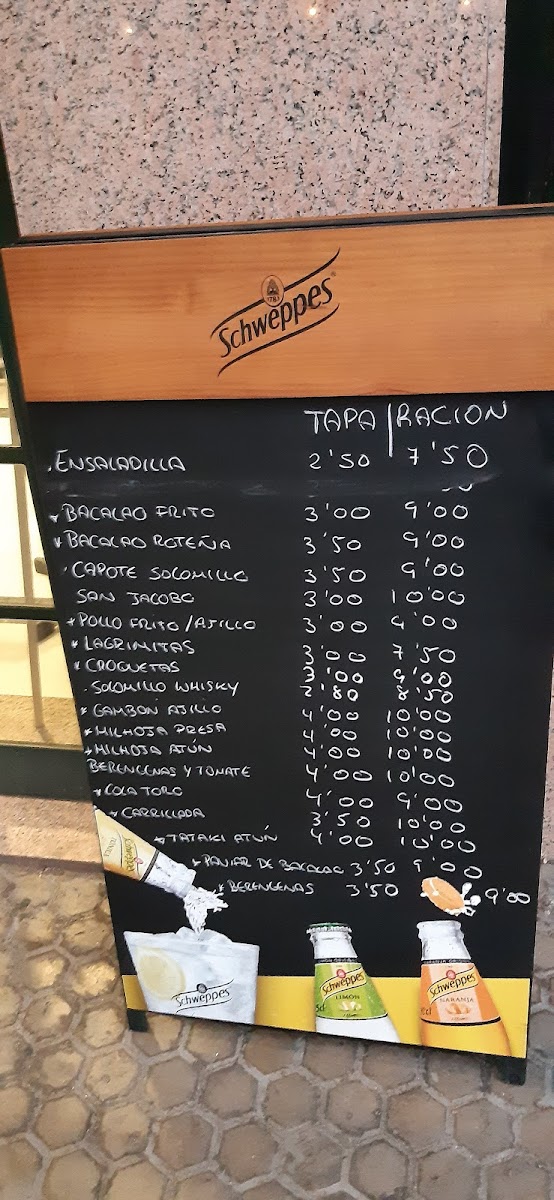 1783
Schweppes
TAPA | RACION
ENSALADILLA 2'50 7'50
BACALAO FRITO 3'00 9'00
BACALAO ROTEÑA 3'50 9'00
CAPOTE SOLOMILLO 3'50 9'00
SAN JACOBO 3'00 10'00
POLLO FRITO/AJILLO 3'00 9'00
LAGRIMITAS 3'00 7'50
CROQUETAS 3'00 9'00
SOLOMILLO WHISKY 2'80 8'50
GAMBON AJILLO 4'00 10'00
MILHOJA PRESA 4'00 10'00
MILHOJA ATÚN 4'00 10'00
BERENGENAS Y TOMATE 4'00 10'00
COLA TORO 4'00 9'00
CARRILLADA 3'50 10'00
TATAKI ATÚN 4'00 10'00
PANIAR DE BACALAO 3'50 9'00
BERENGENAS 3'50 9'00
Schweppes
Schweppes
LIMÓN
Schweppes
NARANJA